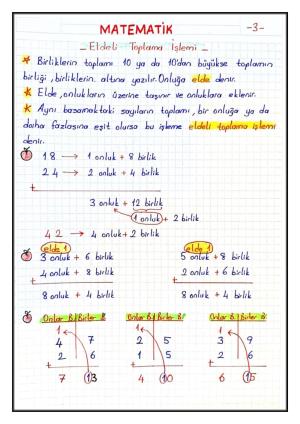 MATEMATİK -3-
Eldeli Toplama İşlemi
* Birliklerin toplamı 10 ya da 10'dan büyükse toplamın
birliği, birliklerin altına yazılır. Onluğa elde denir.
* Elde, onlukların üzerine taşınır ve onluklara eklenir.
* Aynı basamaktaki sayıların toplamı, bir onluğa ya da
daha fazlasına eşit olursa bu işleme eldeli toplama işlemi
denir.
18 → 1 onluk + 8 birlik
24 → 2 onluk + 4 birlik
+
3 onluk + 12 birlik
1 onluk + 2 birlik
42 → 4 onluk + 2 birlik
elde 1 elde 1
3 onluk + 6 birlik 5 onluk + 8 birlik
4 onluk + 8 birlik 2 onluk + 6 birlik
+ +
8 onluk + 4 birlik 8 onluk + 4 birlik
Onlar B. Birler B. Onlar B. Birler B. Onlar B. Birler B.
1 1 1
4 7 2 5 3 9
2 6 1 5 2 6
+ + +
7 13 4 10 6 15